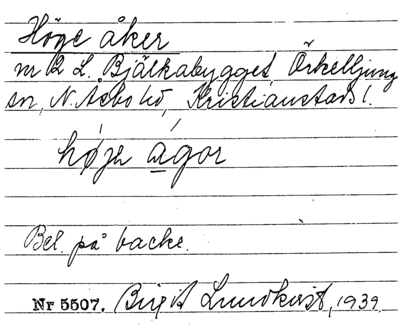 Höge åker
nr 2 L. Bjälkabygget, Örkelljunga
sn, N. Åsbo hd, Kristianstads l.
høje ågor
Bel. på backe.
Nr 5507. Birgit Lundkvist, 1939.